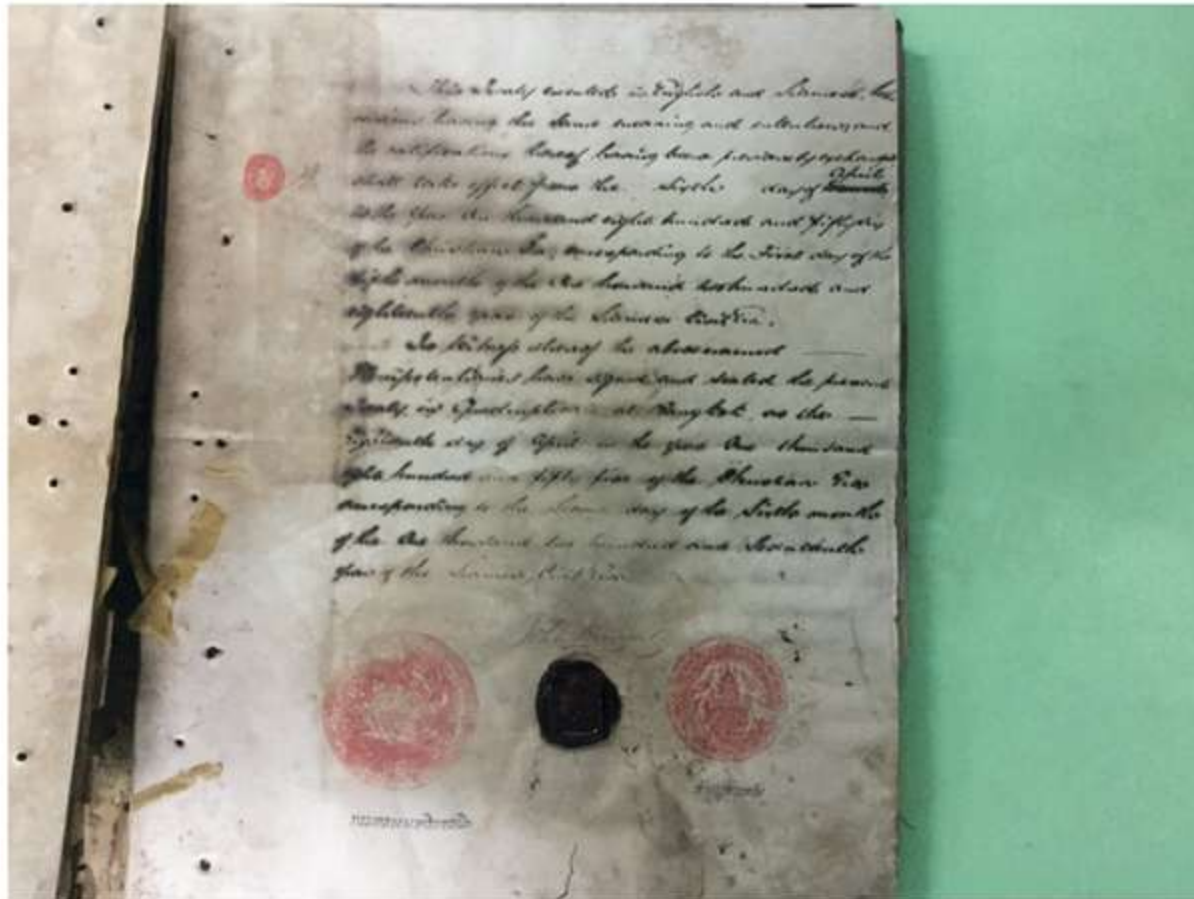 This Treaty executed in English and Siamese, both
versions having the same meaning and intention, and
the ratifications thereof having been previously exchanged
April
shall take effect from the Sixth day of
in the year One thousand eight hundred and fifty six
of the Christian Era, corresponding to the First day of the
fifth month of the One thousand two hundred and
eighteenth year of the Siamese Civil Era.
In Witness whereof the abovenamed
Plenipotentiaries have signed and sealed the present
Treaty in Quadruplicate at Bangkok, on the
Eighteenth day of April in the year One thousand
eight hundred and fifty five of the Christian Era
corresponding to the day of the Sixth month
of the One thousand two hundred and Seventeenth
year of the Siamese Civil Era
John Bowring